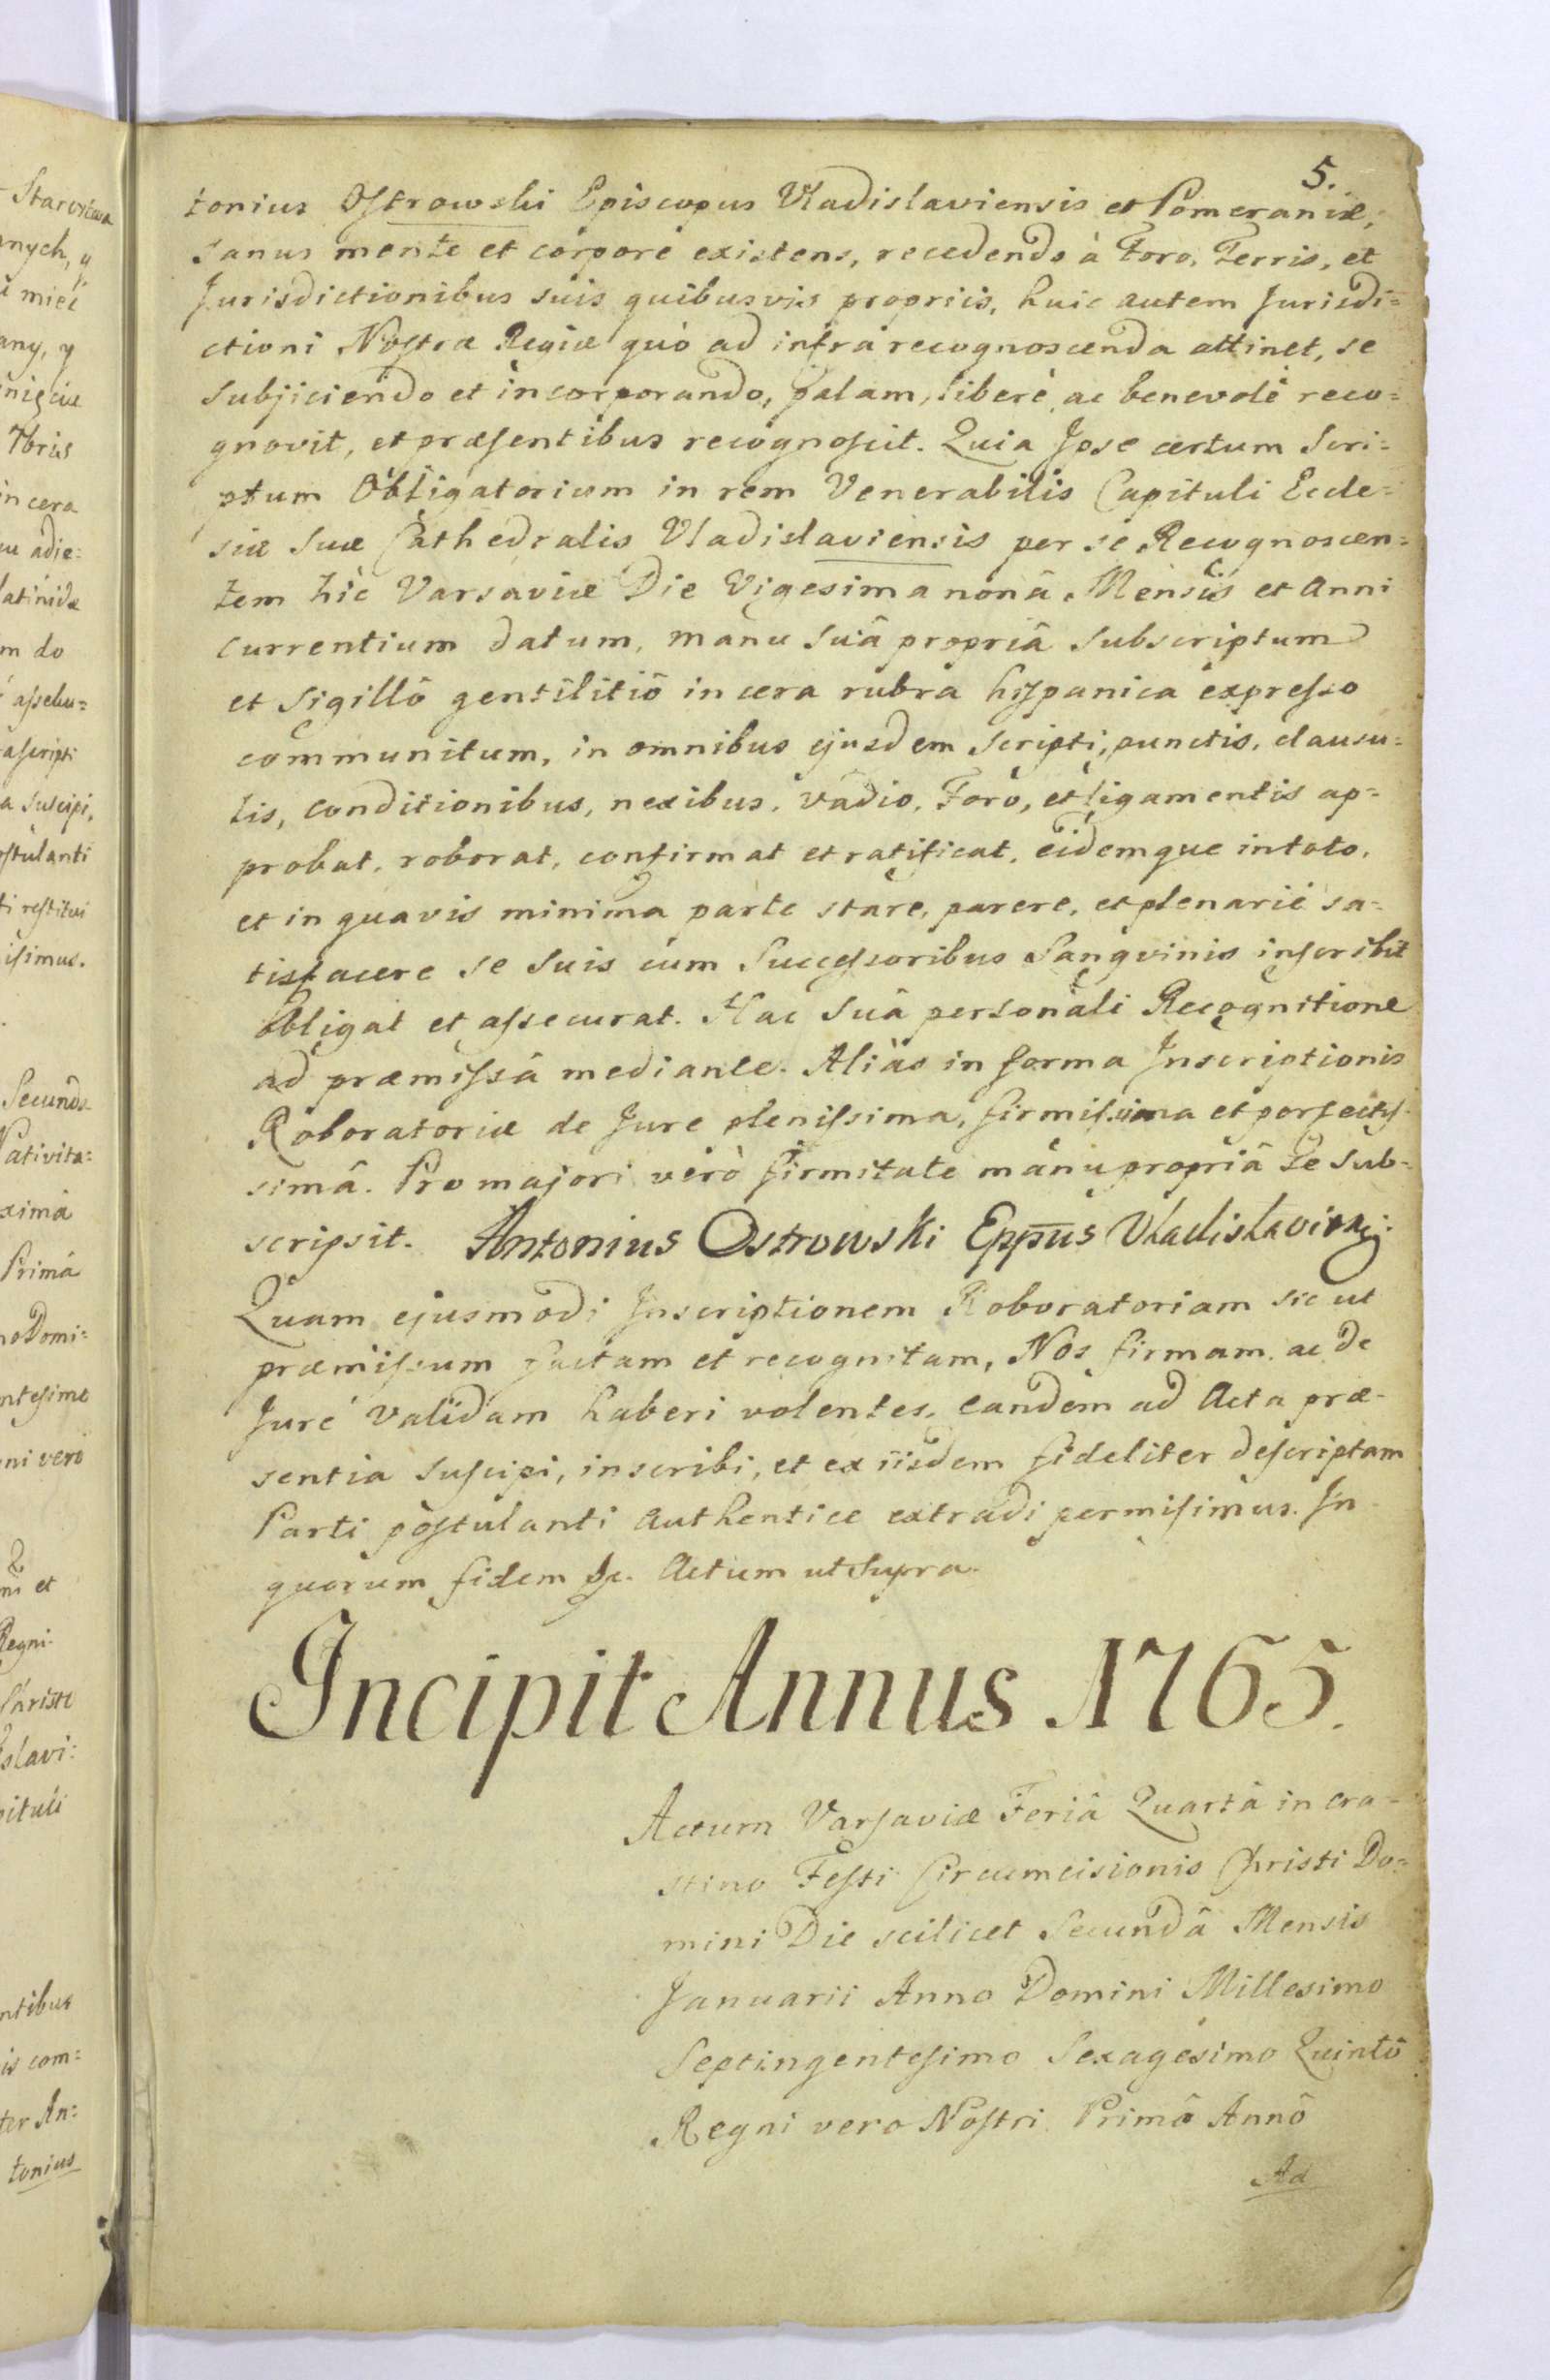 5.
tonius Ostrowski Episcopus Vladislaviensis et Pomeraniæ,
sanus mente et corpore existens, recedendo à Foro, Terris, et
Jurisdictionibus suis quibusvis propriis, huic autem Jurisdi=
ctioni Nostræ Regiæ quò ad infra recognoscenda attinet, se
subjiciendo et incorporando, palam, liberè ac benevolè reco=
gnovit, et præsentibus recognoscit. Quia Ipse certum Scri=
ptum Obligatorium in rem Venerabilis Capituli Eccle=
siæ Suæ Cathedralis Vladislaviensis per se Recognoscen=
tem hìc Varsaviæ Die Vigesima nonâ Mensis et Anni
currentium datum, manu suâ propriâ subscriptum
et Sigillô gentilitiô in cera rubra hispanica expresso
communitum, in omnibus ejusdem Scripti, punctis, clausu=
lis, conditionibus, nexibus, vadio, Foro, et ligamentis ap=
probat, roborat, confirmat et ratificat, eidemque in toto,
et in quavis minima parte stare, parere, et plenariè sa=
tisfacere se suis cum Successoribus Sangvinis inscribit
obligat et assecurat. Hac Suâ personali Recognitione
ad præmissa mediante. Aliàs in forma Inscriptionis
Roboratoriæ de Jure plenissima, firmissima et perfectis-
simâ. Pro majori verò firmitate manu propriâ se sub=
scripsit. Antonius Ostrowski Eppus Vladislavien:
Quam ejusmodi Inscriptionem Roboratoriam sic ut
præmissum factam et recognitam, Nos firmam ac de
Jure validam haberi volentes, eandem ad Acta præ-
sentia suscipi, inscribi, et ex iisdem fideliter descriptam
Parti postulanti authentice extradi permisimus. In
quorum fidem &c. Actum ut supra.
Incipit Annus 1765.
Actum Varsaviæ Feriâ Quartâ in cra-
stino Festi Circumcisionis Christi Do=
mini Die scilicet Secundâ Mensis
Januarii Anno Domini Millesimo
Septingentesimo Sexagesimo Quintô
Regni vero Nostri Primô Annô
Ad